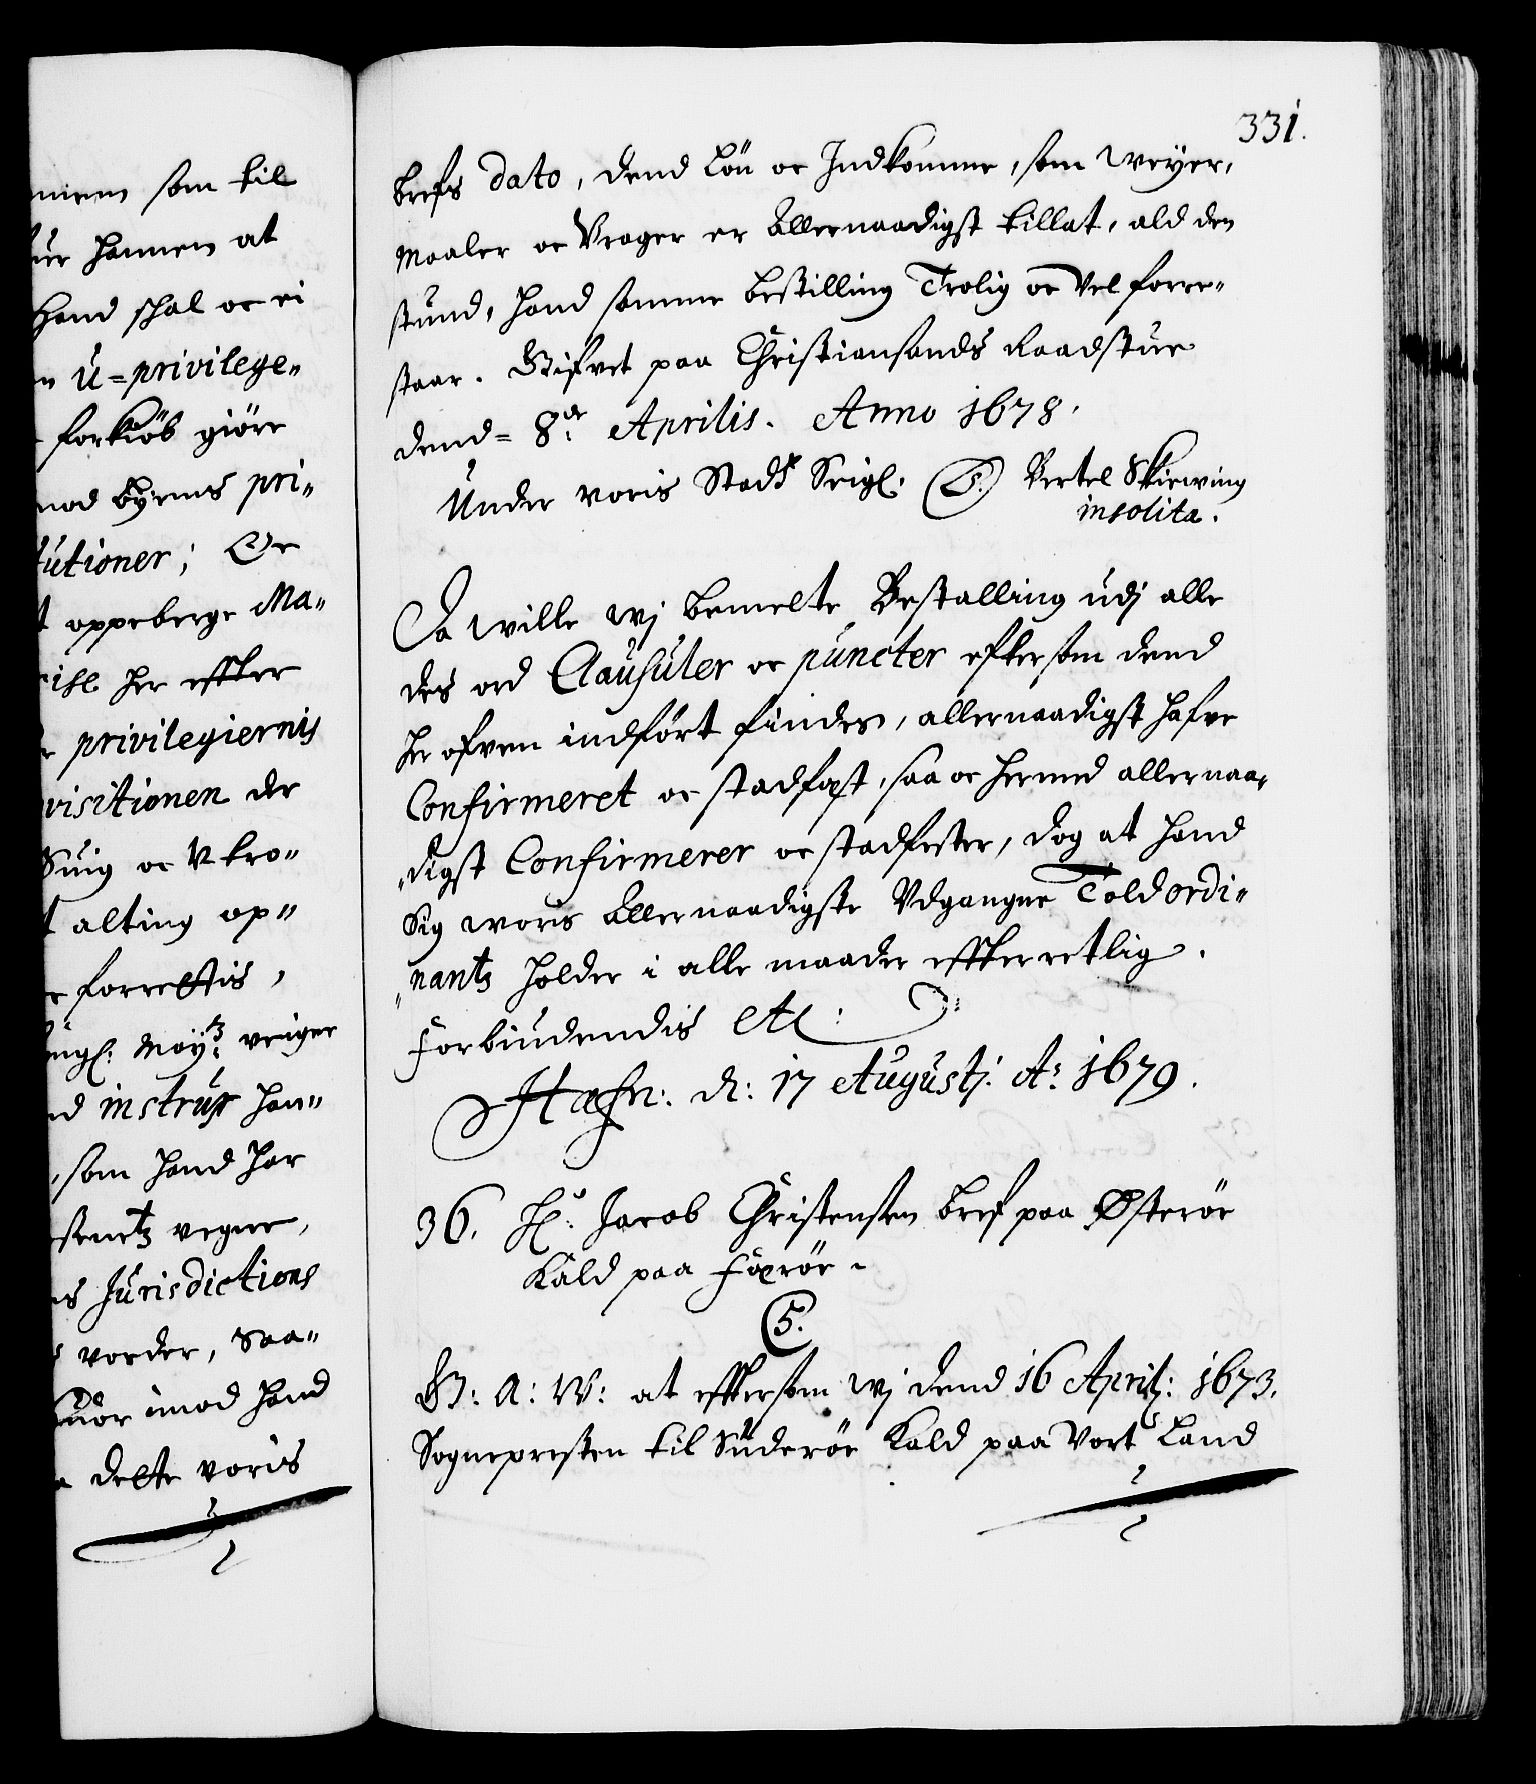 niren som til
hannem at
Hand skal oc ei
U=privilege„
forkiöb giöre
imod byens pri„
tutioner; Oc
oppeberge Ma„
her effter
privilegiernis
visitionen der
Suig oc Utro„
alting op„
forrettis,
Mayts
instrux han„
som hand har
vegne,
Jurisdictions
vorder, Saa„
imod hand
dette voris
331.
brefs dato, dend Lön oc Indkomme, som weyer,
Maaler oc Vrager er Allernaadigst tillat, ald den
stund, hand samme bestilling Trolig oc Vel forre„
staar. Gifvet paa Christiansands Raadstue
dend= 8de Aprilis. Anno 1678.
Under voris Stads Seigl: (S.) Bertel Skiewing
insolita.
Da wille wj bemelte Bestalling udj alle
des ord Clausuler oc puncter eftersom dend
her ofven indfört findes, allernaadigst hafve
Confirmeret oc stadfæst, saa oc hermed allernaa„
„digst Confirmerer oc stadfester, dog at hand
Sig woris Allernaadigste Udgangne Toldordi„
„nantz holder i alle maader effterretlig.
Forbiudendis etc:
Hafn: d: 17 Augustj: Ao 1679.
36. Hr: Jacob Christensen bref paa Österöe
Kald paa Færöe.
(5.)
G: A: W: at efftersom wj dend 16 Aprilj: 1673.
Sognepresten til Suderöe Kald paa Vort Land